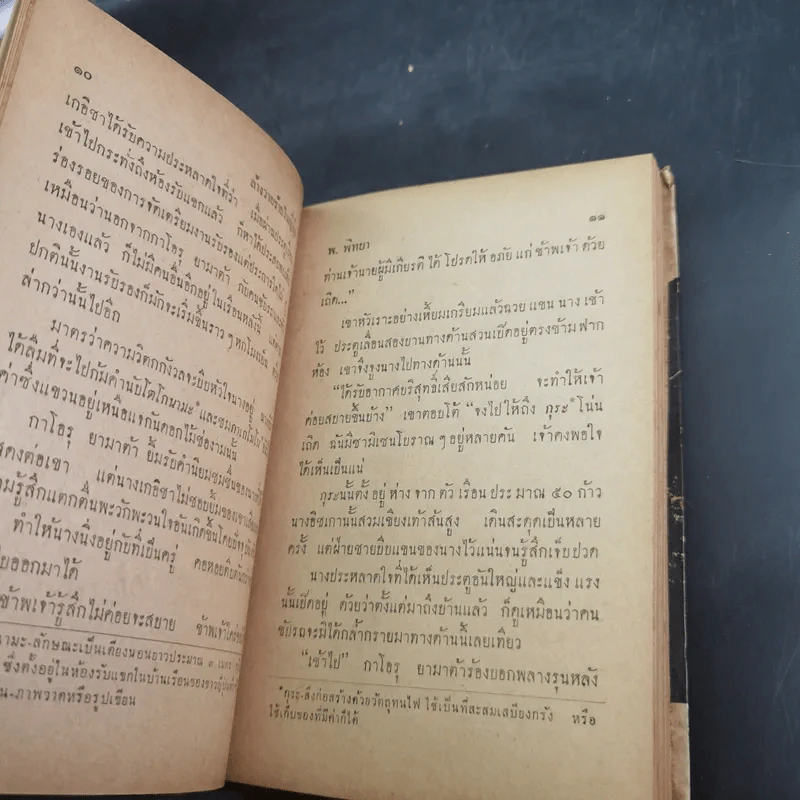 ๑๐
เกอิชาได้รับความประหลาดใจที่ว่า เมื่อผ่านประตู
เข้าไปกระทั่งถึงห้องรับแขกแล้ว ก็หาได้ประสบ
ร่องรอยของการจัดเตรียมงานรับรองแต่ประการใดไม่
เหมือนว่านอกจากกาโอรุ ยามาด้า กับคนขับรถ
นางเองแล้ว ก็ไม่มีคนอื่นอีกอยู่ในเรือนหลังนี้ แต่
ปกตินั้นงานรับรองก็มักจะเริ่มขึ้นราว ๆ หกโมงเย็น
ล่ากว่านั้นไปอีก
มาตรว่าความวิตกกังวลจะบีบหัวใจนางอยู่
ได้ลืมที่จะไปก้มคำนับโตโกนามะ* และชมคาเกโมโน
ค่าซึ่งแขวนอยู่เหนือแจกันดอกไม้ช่องามนั้น
กาโอรุ ยามาด้า ยิ้มรับคำนิยมชมชื่นของนาง
สดงต่อเขา แต่นางเกอิชาไม่ชอบยิ้มของเขาเลย
ามรู้สึกแตกตื่นพะวักพะวนใจอันเกิดขึ้นโดย
ทำให้นางนิ่งอยู่กับที่เป็นครู่ คอหอยตีบตัน
ยออกมาได้
ข้าพเจ้ารู้สึกไม่ค่อยจะสบาย ข้าพเจ้าใคร่
นามะ-ลักษณะเป็นเตียงนอนยาวประมาณ ๓ เมตร
ซึ่งตั้งอยู่ในห้องรับแขกในบ้านเรือนของชาวญี่ปุ่น
น-ภาพวาดหรือรูปเขียน
พ. พิทยา ๑๑
ท่านเจ้านายผู้มีเกียรติได้โปรดให้อภัยแก่ข้าพเจ้าด้วย
เถิด..."
เขาหัวเราะอย่างเหี้ยมเกรียมแล้วฉวยแขนนางเข้า
ไว้ ประตูเลื่อนสองบานทางด้านสวนเปิดอยู่ตรงข้ามฟาก
ห้อง เขาจึงจูงนางไปทางด้านนั้น
"ได้รับอากาศบริสุทธิ์เสียสักหน่อย จะทำให้เจ้า
ค่อยสบายขึ้นบ้าง" เขาตอบโต้ "จงไปให้ถึง กุระ* โน่น
เถิด ฉันมีซามิเซนโบราณ ๆ อยู่หลายคัน เจ้าคงพอใจ
ได้เห็นเป็นแน่
กุระนั้นตั้งอยู่ห่างจากตัวเรือนประมาณ ๕๐ ก้าว
นางอิซเกานั้นสวมเชิงเท้าส้นสูง เดินสะดุดเป็นหลาย
ครั้ง แต่ฝ่ายชายบีบแขนของนางไว้แน่นจนรู้สึกเจ็บปวด
นางประหลาดใจที่ได้เห็นประตูอันใหญ่และแข็งแรง
นั้นเปิดอยู่ ด้วยว่าตั้งแต่มาถึงบ้านแล้ว ก็ดูเหมือนว่าคน
ขับรถจะมิได้กล้ำกรายมาทางด้านนี้เลยเทียว
"เข้าไป" กาโอรุ ยามาด้าร้องบอกพลางรุนหลัง
*กุระ-สิ่งก่อสร้างด้วยวัตถุทนไฟ ใช้เป็นที่สะสมเสบียงกรัง หรือ
ใช้เก็บของที่มีค่าก็ได้